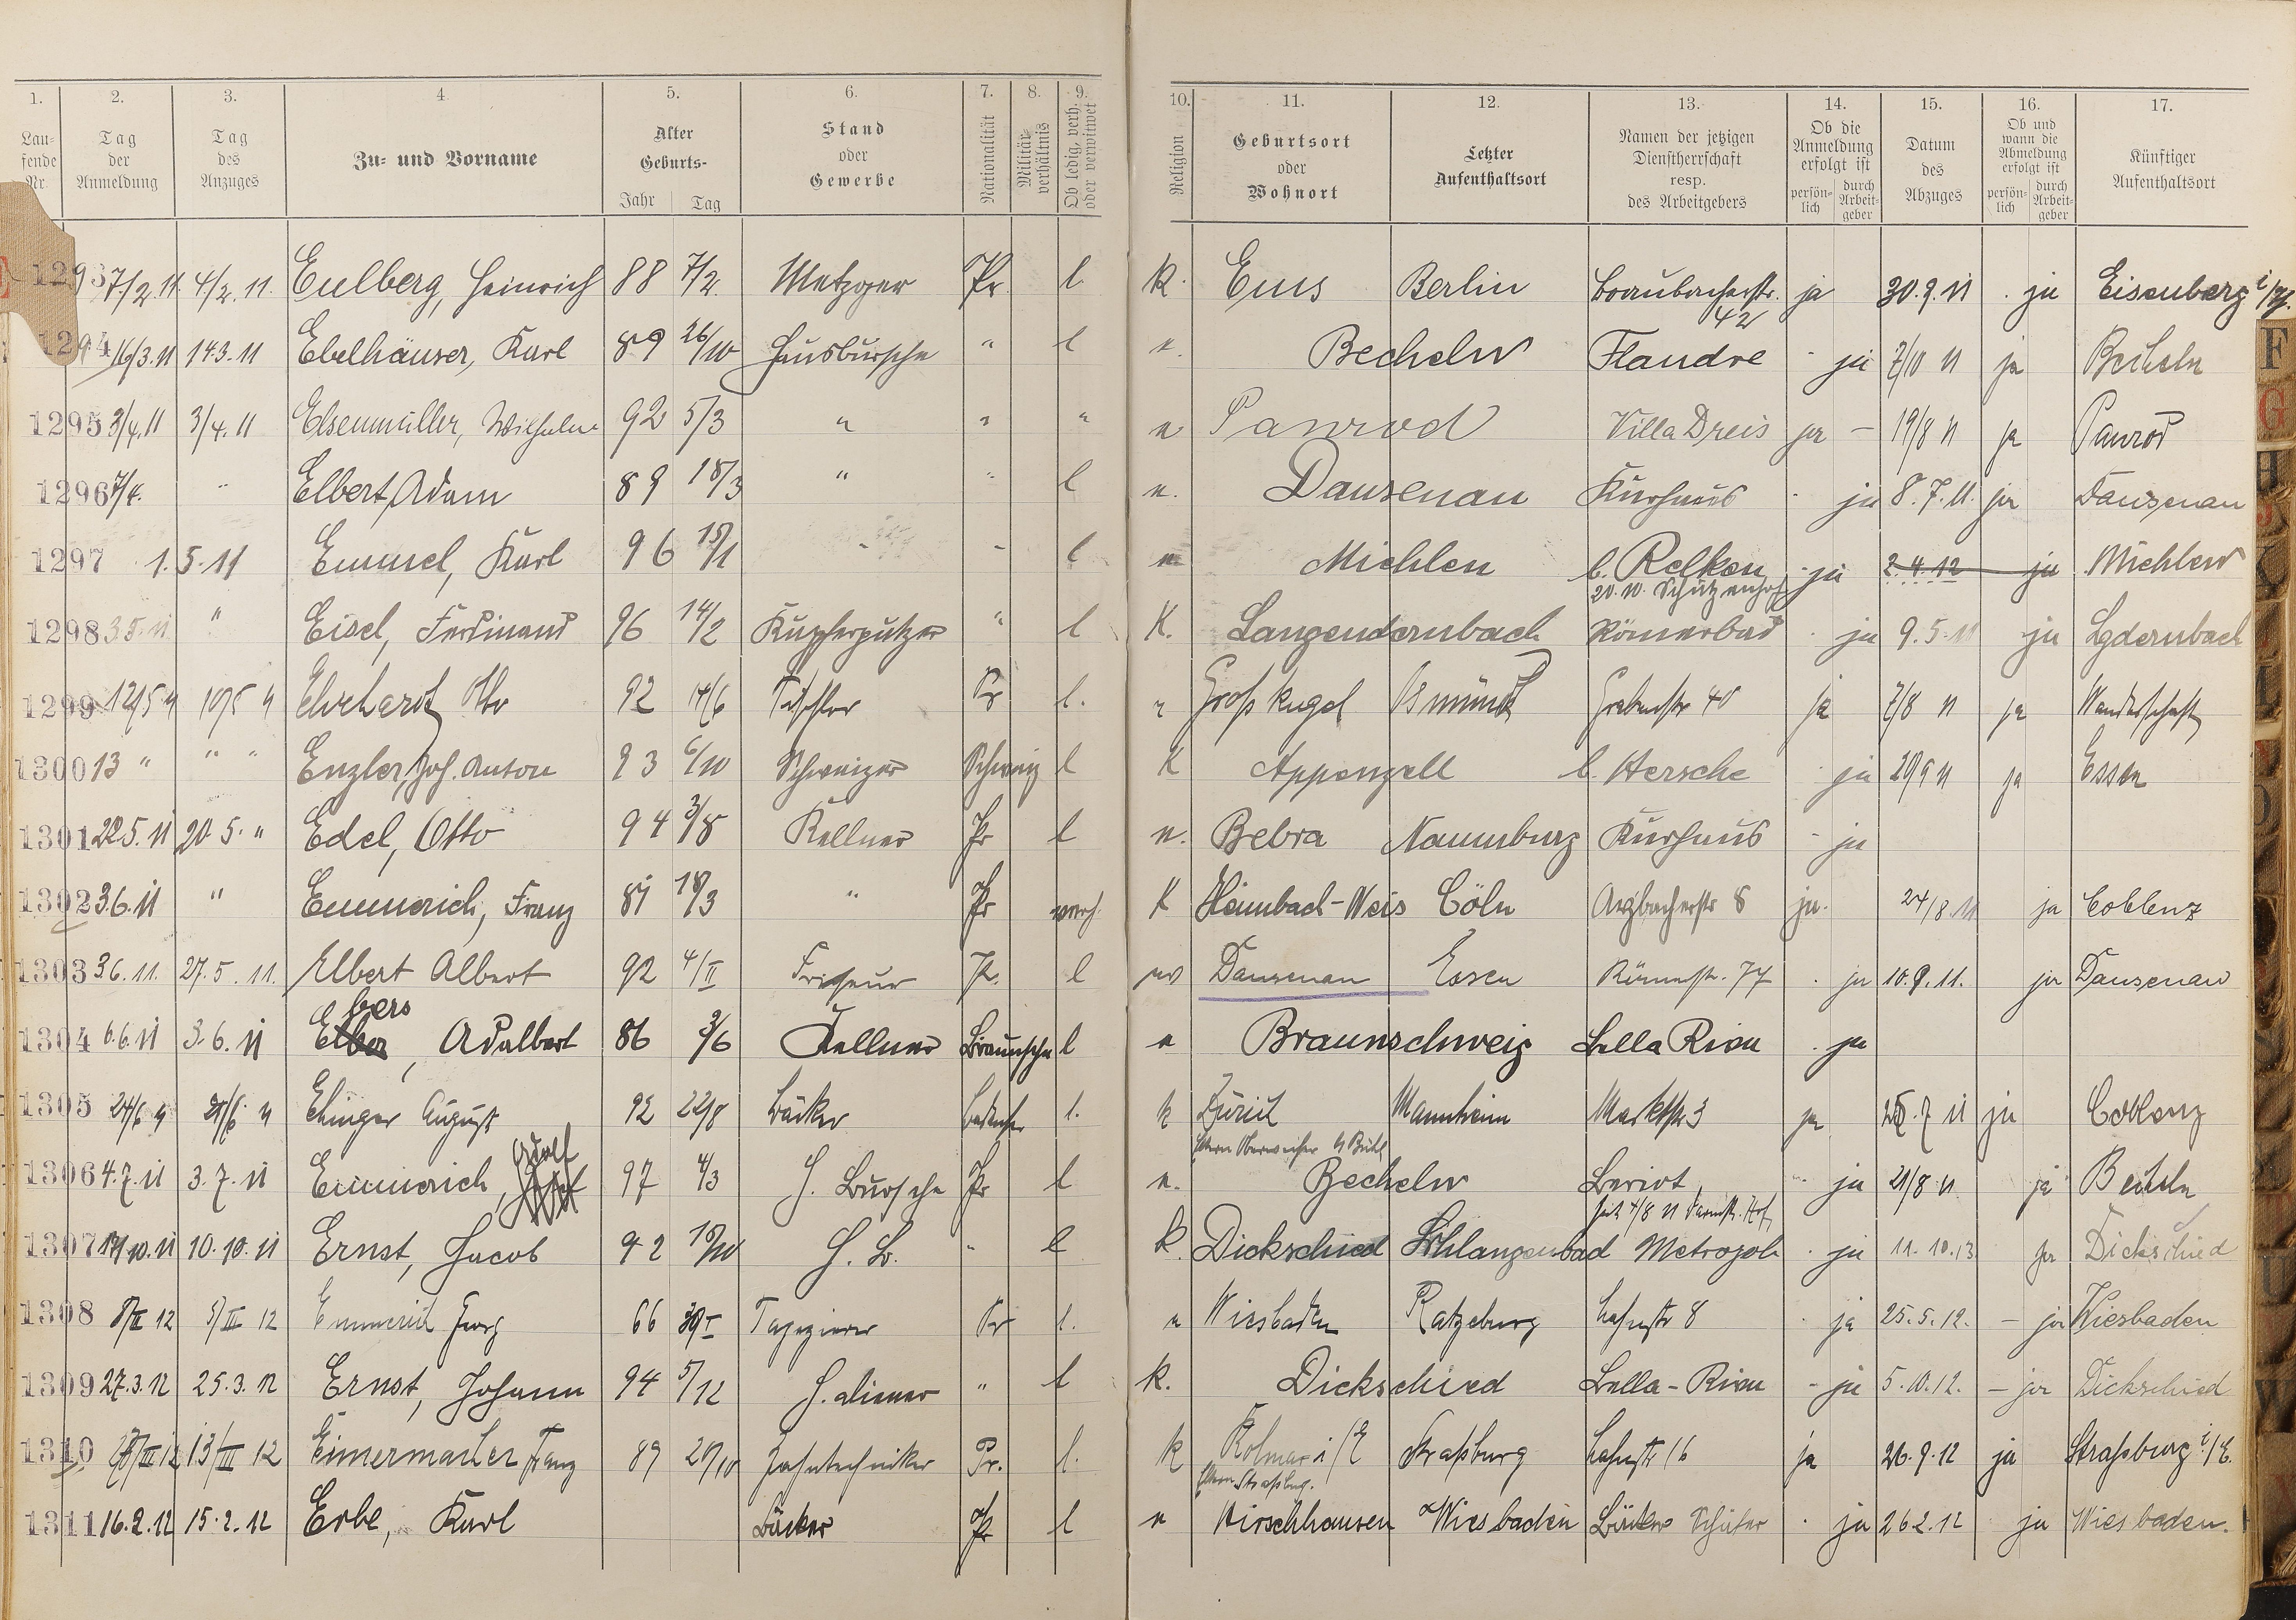 1. 2. 3. 4. 5. 6. 7. 8. 9. 10. 11. 12. 13. 14. 15. 16. 17.
Laufende Nr. Tag der Anmeldung Tag des Anzuges Zu- und Vorname Alter Geburts- Jahr Tag Stand oder Gewerbe Nationalität Militärverhältnis Ob ledig, verh. oder verwitwet Religion Geburtsort oder Wohnort Letzter Aufenthaltsort Namen der jetzigen Dienstherrschaft resp. des Arbeitgebers Ob die Anmeldung erfolgt ist persönlich durch Arbeitgeber Datum des Abzuges Ob und wann die Abmeldung erfolgt ist persönlich durch Arbeitgeber Künftiger Aufenthaltsort
1293 7/2.11. 4/2.11. Eulberg, Heinrich 88 7/2. Metzger Pr. l K. Ems Berlin Braubacherstr. 42 ja 30.9.11 ja Eisenberg
1294 16/3.11 14.3.11 Ebelhäuser, Karl 89 26/10 Hausbursche " l Becheln Flandre ja 7/10 11 ja Becheln
1295 3/4.11 3/4.11 Elsenmüller, Wilhelm 92 5/3 " " " Panrod Villa Dreis ja – 19/8 11 ja Panrod
1296 7/4. " Elbert, Adam 89 18/3 " " l Dausenau Kurhaus ja 8.7.11. ja Dausenau
1297 1.5.11 Emmel, Karl 96 l Miehlen b. Relken 20.10. Schützenhof ja 2.4.12 ja Miehlen
1298 3.5.11 " Eisel, Ferdinand 96 14/2 Kupferputzer " l K. Langendernbach Römerbad ja 9.5.11 ja Lgdernbach
1299 12/5 11 10/5 11 Ehrhardt Otto 92 14/6 Tischler Pr l. Groß Kugel Grabenstr 40 ja 7/8 11 ja Wanderschaft
1300 13 " " " Enzler, Joh. Anton 93 6/10 Schweizer Schweiz l K Appenzell b. Hersche ja ja Essen
1301 22.5.11 20.5. " Edel, Otto 94 3/8 Kellner Pr l Bebra Naumburg Kurhaus ja
1302 3.6.11 " Emmerich, Franz 81 18/3 " Pr verh. K Heimbach-Weis Cöln Arzbacherstr 8 ja. 24/8.11 ja Coblenz
1303 3.6.11. 27.5.11. Elbert Albert 92 4/II Friseur Pr. l Dausenau Essen Römerstr. 77 ja 10.9.11. ja Dausenau
1304 6.6.11 3.6.11 Ebers, Adalbert 86 3/6 Kellner Braunschw l Braunschweig Bella Riva ja
1305 24/6 11 Ehinger August 92 22/8 Bäcker l. k Zürich Mannheim Marktstr 3 ja ja Coblenz
1306 4.7.11 3.7.11 Emmerich, Adolf 97 4/3 H. Bursche Pr l Becheln Beriot, seit 4/8 11 Darmst. Hof ja 21/8 11 ja Becheln
1307 10.10.11 Ernst, Jacob 92 H. B. " l k. Dickschied Schlangenbad Metropole ja 11.10.13 ja Dickschied
1308 12 12 Emmerich Georg 66 Tapezierer Pr l. Wiesbaden Ratzeburg Lahnstr 8 ja 25.5.12. – ja Wiesbaden
1309 27.3.12 25.3.12 Ernst, Johann 94 5/12 H. diener " l k. Dickschied Bella-Riva ja 5.10.12. – ja Dickschied
1310 13/III 12 Eimermacher Franz 89 Zahntechniker Pr. l. k Kolmar i/E Eltern Straßbg. Straßburg Lahnstr 16 ja 26.9.12 ja Straßburg i/E.
1311 16.2.12 15.2.12 Erbe, Karl Bäcker Pr l Hirschhausen Wiesbaden Bäcker Schäfer ja 26.2.12 ja Wiesbaden.
F
G
H
J
K